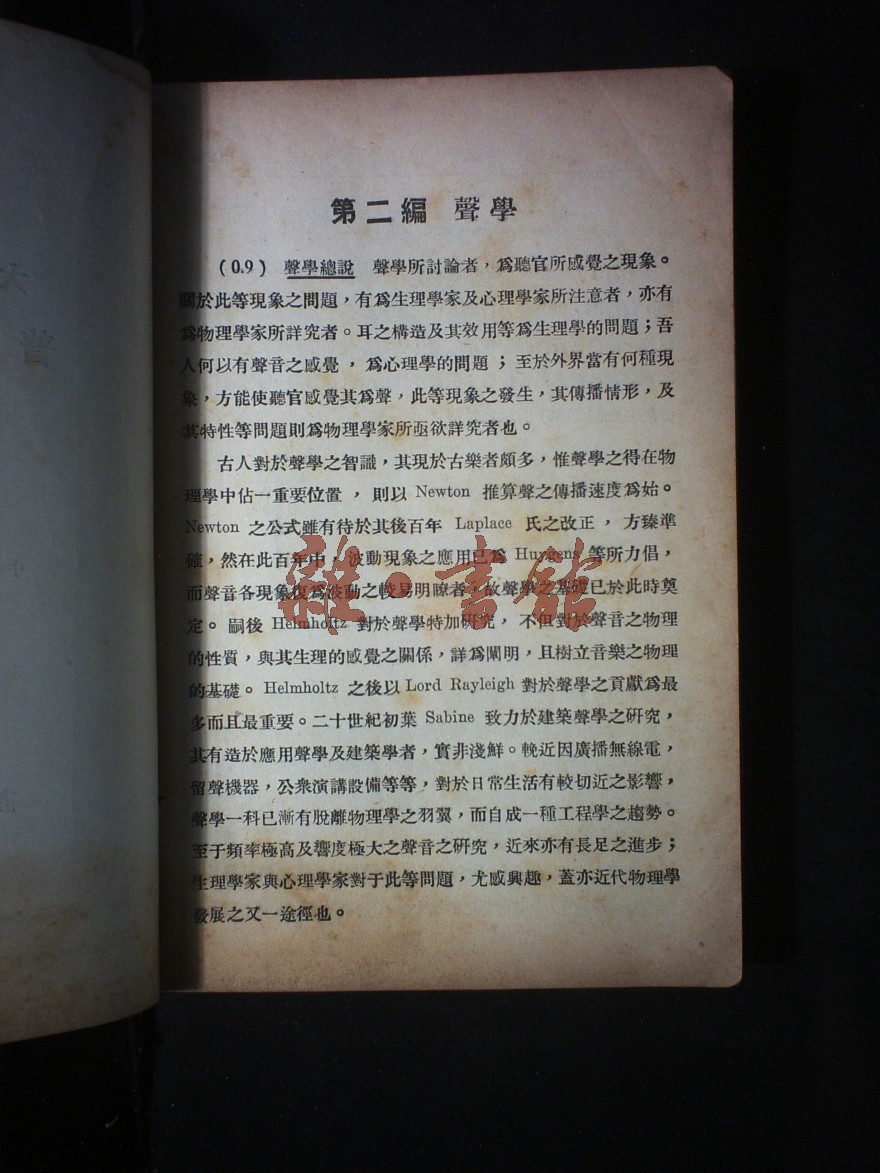 第二編 聲學
(0.9) 聲學總說 聲學所討論者，爲聽官所感覺之現象。
關於此等現象之問題，有爲生理學家及心理學家所注意者，亦有
爲物理學家所詳究者。耳之構造及其效用等爲生理學的問題；吾
人何以有聲音之感覺，爲心理學的問題；至於外界當有何種現
象，方能使聽官感覺其爲聲，此等現象之發生，其傳播情形，及
其特性等問題則爲物理學家所亟欲詳究者也。
古人對於聲學之智識，其現於古樂者頗多，惟聲學之得在物
理學中佔一重要位置，則以 Newton 推算聲之傳播速度爲始。
Newton 之公式雖有待於其後百年 Laplace 氏之改正，方臻準
確，然在此百年中，波動現象之應用已爲 Huygens 等所力倡，
而聲音各現象復爲波動之較易明瞭者，故聲學之基礎已於此時奠
定。嗣後 Helmholtz 對於聲學特加研究，不但對於聲音之物理
的性質，與其生理的感覺之關係，詳爲闡明，且樹立音樂之物理
的基礎。Helmholtz 之後以 Lord Rayleigh 對於聲學之貢獻爲最
多而且最重要。二十世紀初葉 Sabine 致力於建築聲學之研究，
其有造於應用聲學及建築學者，實非淺鮮。輓近因廣播無線電，
留聲機器，公衆演講設備等等，對於日常生活有較切近之影響，
聲學一科已漸有脫離物理學之羽翼，而自成一種工程學之趨勢。
至于頻率極高及響度極大之聲音之研究，近來亦有長足之進步；
生理學家與心理學家對于此等問題，尤感興趣，蓋亦近代物理學
發展之又一途徑也。
雜·書館